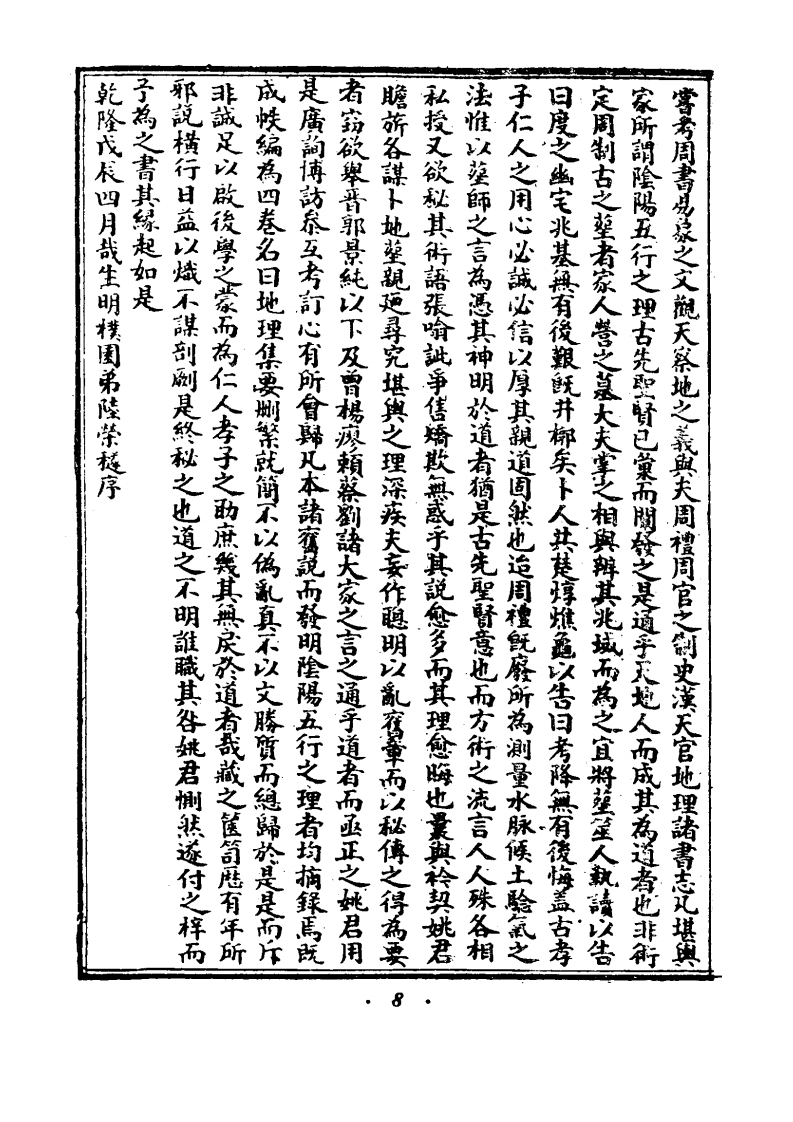 嘗考周書易象之文觀天察地之義與夫周禮周官之制史漢天官地理諸書志凡堪輿
家所謂陰陽五行之理古先聖賢已彙而闡發之是通乎天地人而成其為道者也非術
定周制古之塟者家人營之墓大夫掌之相與辨其兆域而為之宜將塟筮人執讀以告
曰度之幽宅兆基無有後艱旣井椰矣卜人共𦶟焞燋龜以告曰考降無有後悔盖古孝
子仁人之用心必誠必信以厚其親道固然也迨周禮旣廢所為測量水脉候土騐氣之
法惟以塟師之言為憑其神明於道者猶是古先聖賢意也而方術之流言人人殊各相
私授又欲秘其術語張喻訿爭售矯欺無惑乎其說愈多而其理愈晦也曩與衿契姚君
瞻旂各謀卜地塟親廼尋究堪輿之理深疾夫妄作聰明以亂舊章而以秘傳之得為要
者竊欲舉晉郭景純以下及曾楊廖賴蔡劉諸大家之言之通乎道者而亟正之姚君用
是廣詢博訪叅互考訂心有所會歸凡本諸舊說而發明陰陽五行之理者均摘錄焉旣
成帙編為四卷名曰地理集要刪繁就簡不以偽亂真不以文勝質而總歸於是是而斥
非誠足以啟後學之蒙而為仁人孝子之助庶幾其無戾於道者哉藏之篋笥歷有年所
邪說橫行日益以熾不謀剖劂是終秘之也道之不明誰職其咎姚君惻然遂付之梓而
予為之書其緣起如是
乾隆戊辰四月哉生明樸園弟陸榮𥠖序
· 8 ·